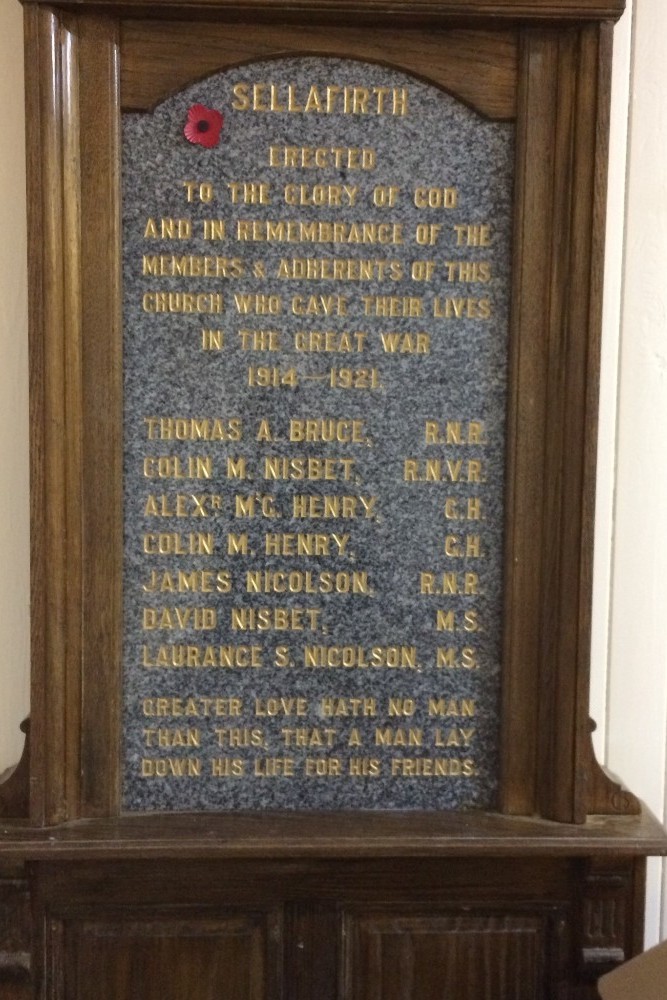 SELLAFIRTH
ERECTED
TO THE GLORY OF GOD
AND IN REMEMBRANCE OF THE
MEMBERS & ADHERENTS OF THIS
CHURCH WHO GAVE THEIR LIVES
IN THE GREAT WAR
1914—1921.
THOMAS A. BRUCE, R.N.R.
COLIN M. NISBET, R.N.V.R.
ALEXR MCG. HENRY, G.H.
COLIN M. HENRY, G.H.
JAMES NICOLSON, R.N.R.
DAVID NISBET, M.S.
LAURANCE S. NICOLSON, M.S.
GREATER LOVE HATH NO MAN
THAN THIS, THAT A MAN LAY
DOWN HIS LIFE FOR HIS FRIENDS.